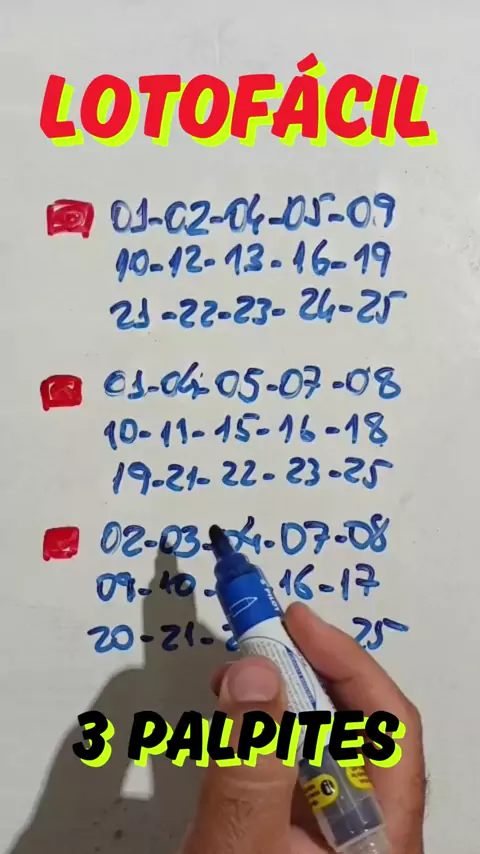 LOTOFÁCIL
01-02-04-05-09
10-12-13-16-19
21-22-23-24-25
01-04-05-07-08
10-11-15-16-18
19-21-22-23-25
02-03-04-07-08
09-10- 16-17
20-21- 25
PILOT
3 PALPITES